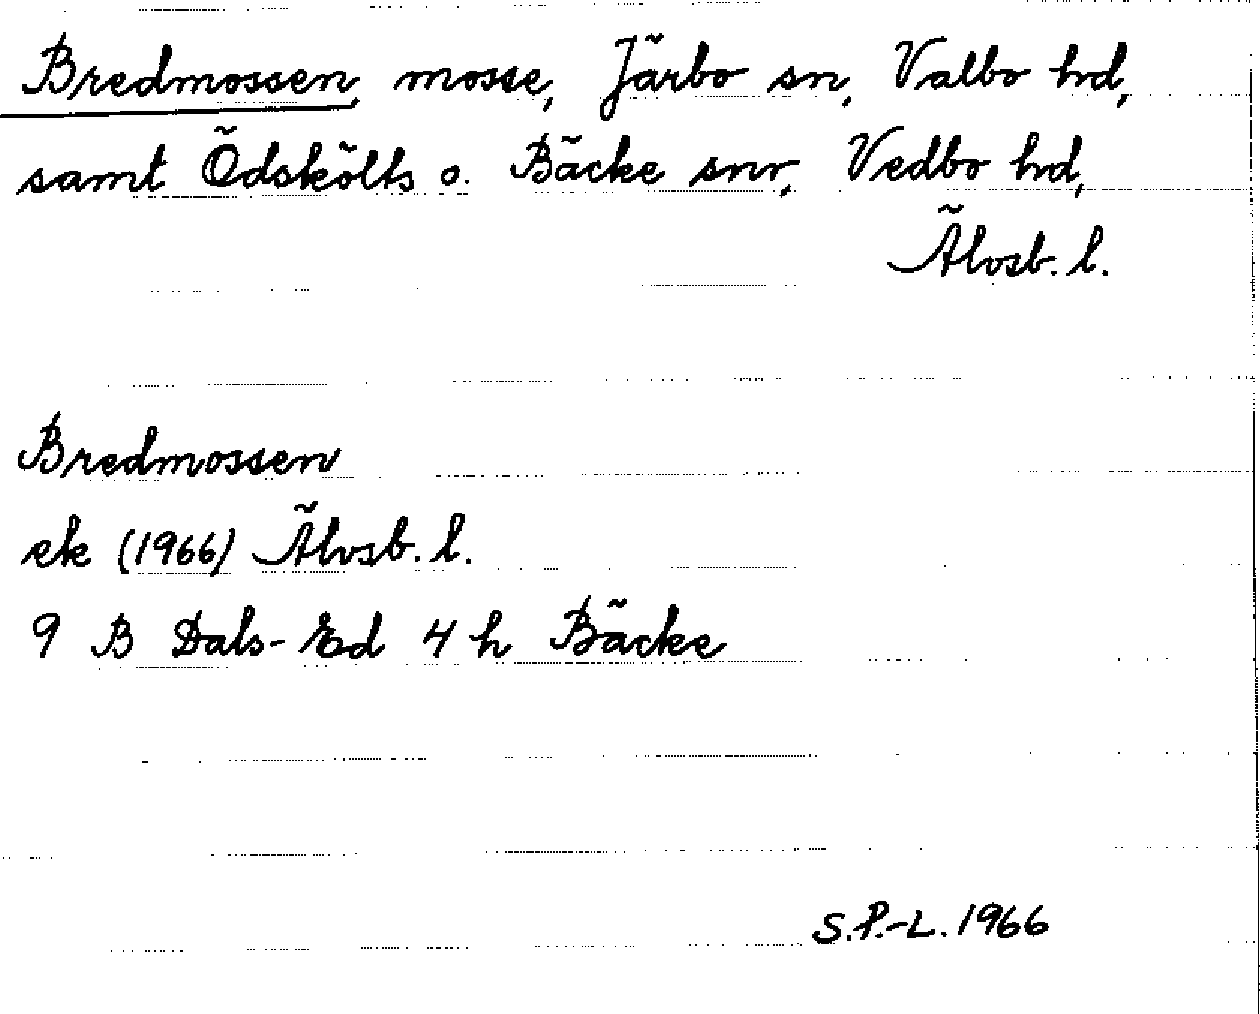 Bredmossen, mosse, Järbo sn, Valbo hd,
samt Ödskölts o. Bäcke snr, Vedbo hd,
Älvsb. l.
Bredmossen
ek (1966) Älvsb. l.
9 B Dals-Ed 4 h Bäcke
S.P.-L. 1966